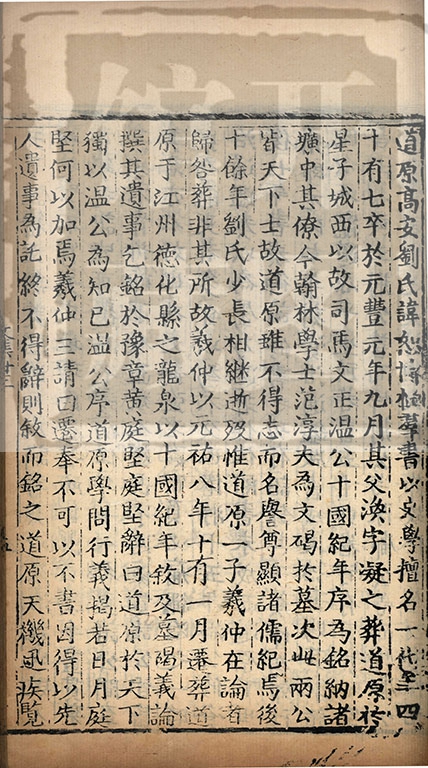 道原高安劉氏諱恕博極羣書以史學擅名一代年四
十有七卒於元豐元年九月其父渙字凝之葬道原於
星子城西以故司馬文正溫公十國紀年序為銘納諸
壙中其僚今翰林學士范淳夫為文碣於墓次此兩公
皆天下士故道原雖不得志而名譽尊顯諸儒紀焉後
十餘年劉氏少長相繼逝歿惟道原一子羲仲在論者
歸咎葬非其所故羲仲以元祐八年十有一月遷葬道
原于江州德化縣之龍泉以十國紀年敘及墓碣義論
撰其遺事乞銘於豫章黃庭堅庭堅辭曰道原於天下
獨以溫公為知己溫公序道原學問行義揭若日月庭
堅何以加焉羲仲三請曰遷奉不可以不書因得以先
人遺事為託終不得辭則敘而銘之道原天機迅疾覽